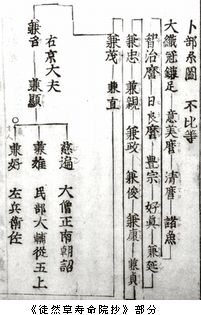 卜部系圖 不比等
大織冠鎌足 意美麿 清麿 諸魚
智治麿 日良麿 豊宗 好真 兼延
兼忠 兼親 兼政 兼俊 兼康 兼貞
兼茂 兼直
兼名
右京大夫
兼顕
慈遍 大僧正南朝詔
兼雄 民部大輔從五上
兼好 左兵衛佐
《徒然草寿命院抄》部分